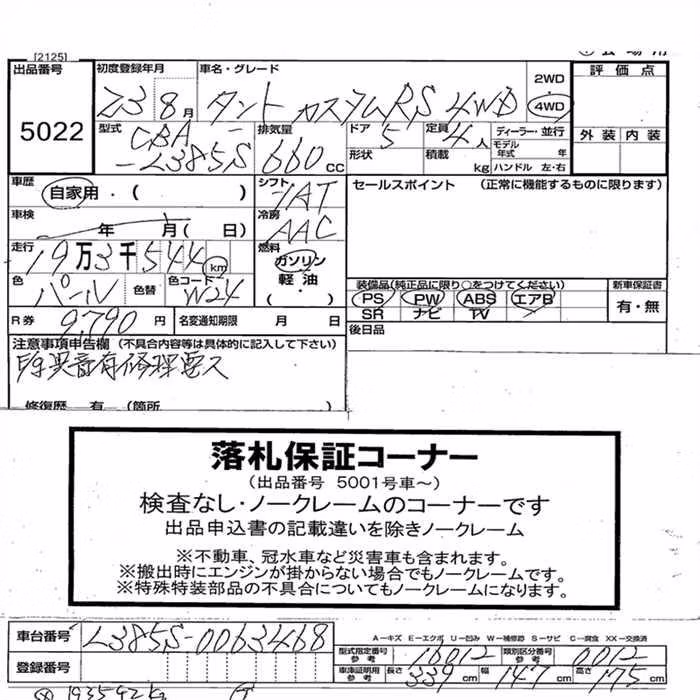 [2125]
出品番号
5022
初度登録年月
23 8月
車名・グレード
タント カスタムRS 4WD
2WD
・
4WD
評価点
外装 内装
型式
CBA
-L385S
排気量
660 cc
ドア 5
形状
定員 4人
積載 kg
ディーラー・並行
モデル年式 年
ハンドル 左・右
車歴
自家用・( )
シフト
IAT
セールスポイント (正常に機能するものに限ります)
車検
年 月( 日)
冷房
AAC
走行
19万3千544km
燃料
ガソリン
軽油
( ・ )
色 パール
色替
色コード W24
装備品(純正品に限り○をつけてください)
PS PW ABS エアB
SR ナビ TV
新車保証書
有・無
R券 9,790 円
名変通知期限 月 日
後日品
注意事項申告欄 (不具合内容等は具体的に記入して下さい)
異音有修理要ス
修復歴 有 (箇所 )
落札保証コーナー
(出品番号 5001号車~)
検査なし・ノークレームのコーナーです
出品申込書の記載違いを除きノークレーム
※不動車、冠水車など災害車も含まれます。
※搬出時にエンジンが掛からない場合でもノークレームです。
※特殊特装部品の不具合についてもノークレームになります。
車台番号 L385S-0063468
登録番号
A−キズ E−エクボ U−凹み W−補修跡 S−サビ C−腐食 XX−交換済
型式指定番号 参考 16012
類別区分番号 参考 0012
車庫証明用 参考 長さ 339 cm 幅 147 cm 高さ 175 cm